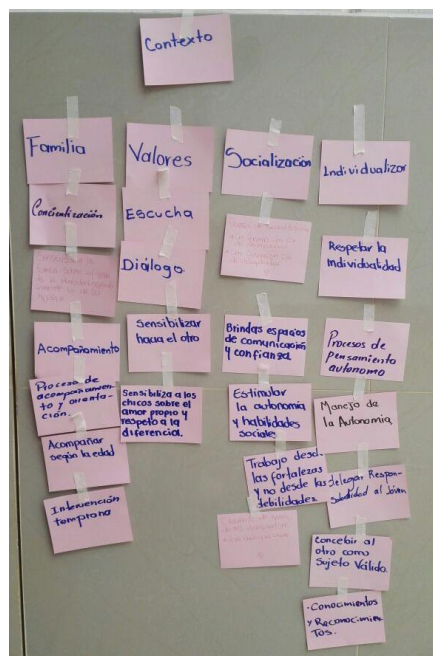 Contexto
Familia
Concientización
Acompañamiento
Proceso de
acompañamien
to y orienta-
ción.
Acompañar
según la edad
Intervención
temprana
Valores
Escucha
Diálogo
Sensibilizar
hacia el otro
Sensibiliza a los
chicos sobre el
amor propio y
respeto a la
diferencial.
Socialización
Brindas espacios
de comunicación
y confianza
Estimular
la autonomía
y habilidades
sociales
Trabajo desd.
las fortalezas
y no desde las
debilidades.
Individualizar
Respetar la
individualidad
Procesos de
pensamiento
autonomo
Manejo de
la Autonomia
delegar Respon-
sabilidad al Jóven
Concebir al
otro como
Sujeto Válido.
·Conocimientos
y Reconocimien
Tos.